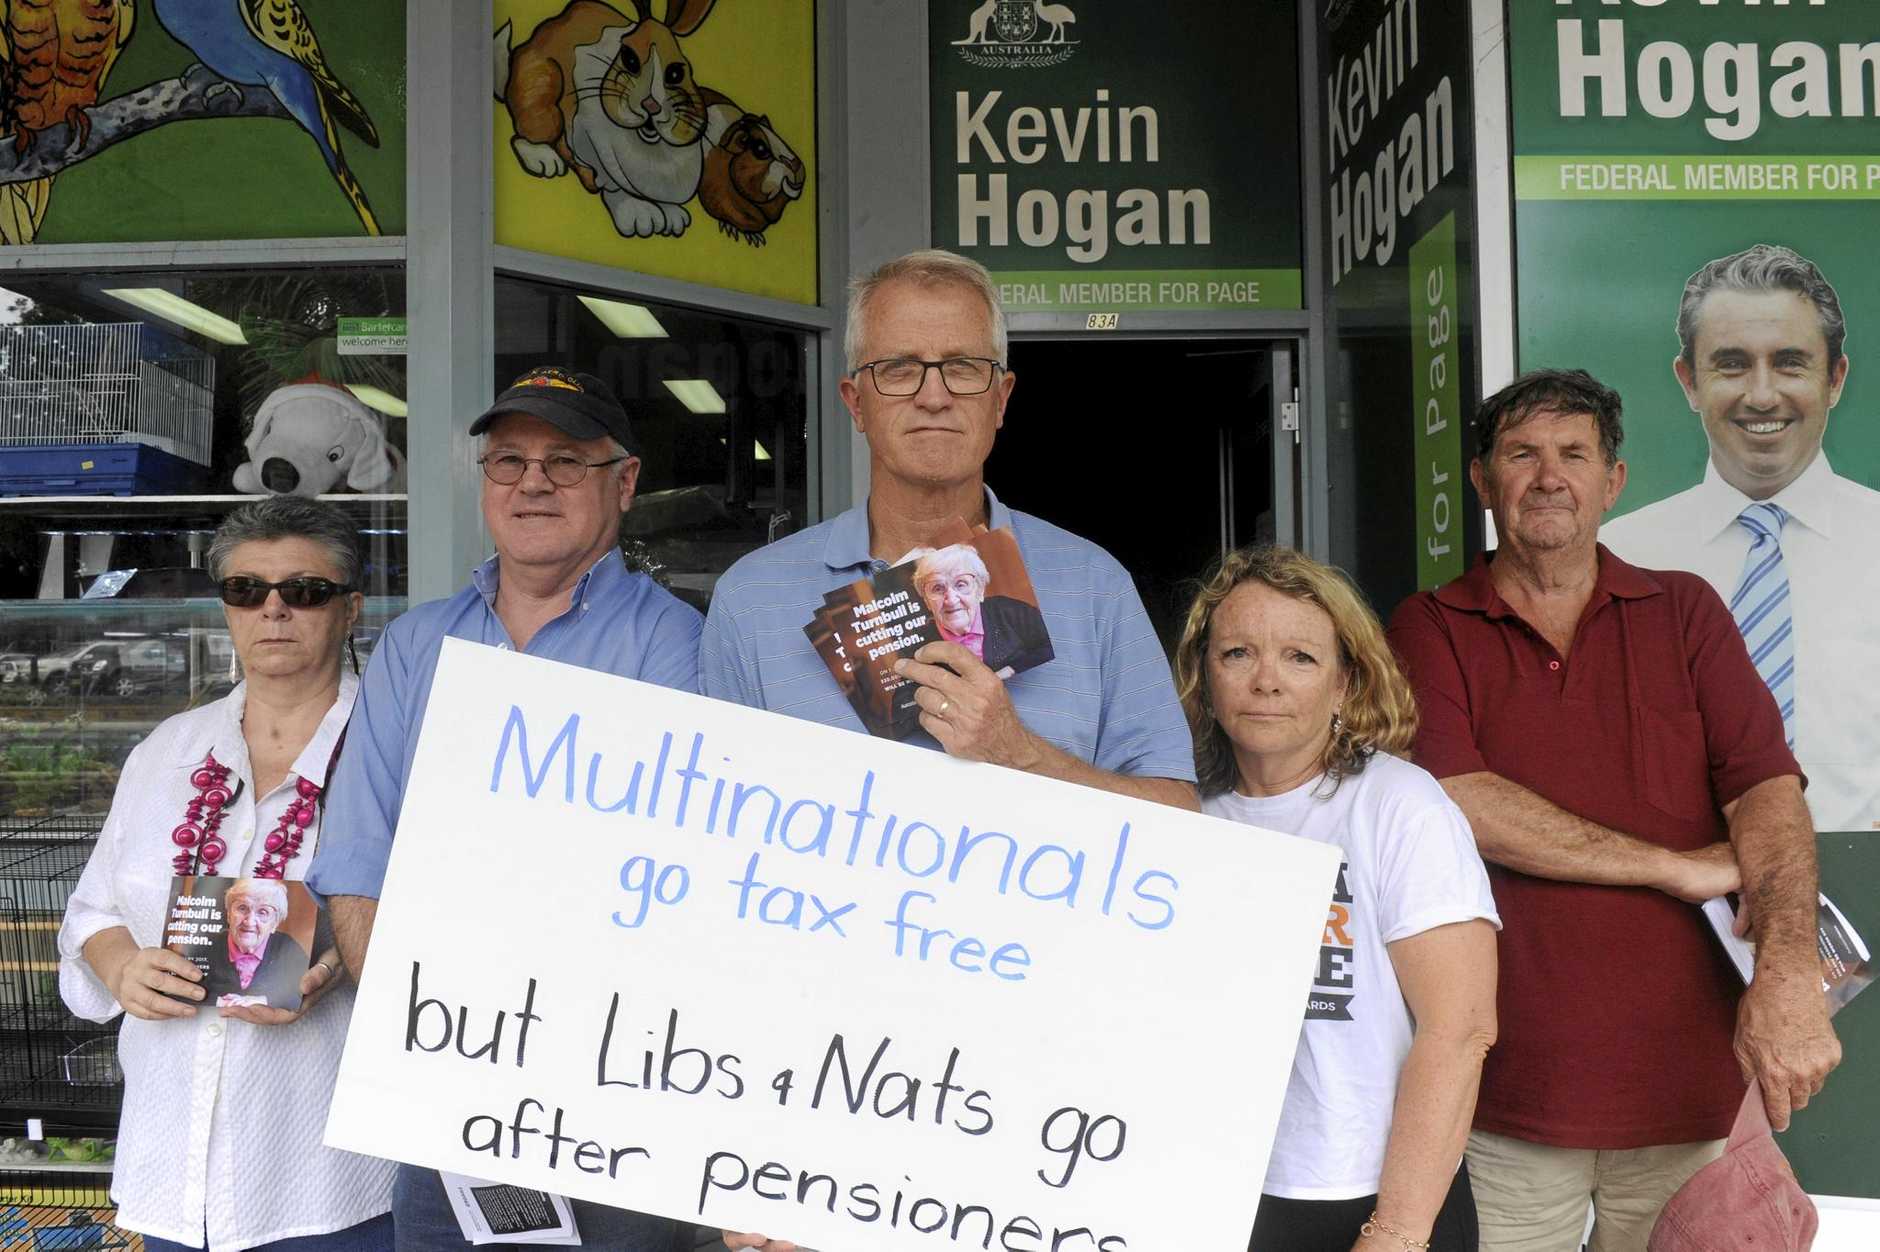 AUSTRALIA
Kevin
Hogan
ERAL MEMBER FOR PAGE
83A
Kevin
Hogan
for Page
Kevin
Hogan
FEDERAL MEMBER FOR P
Bartercard
welcome here
Malcolm
Turnbull is
cutting our
pension.
Malcolm
Turnbull is
cutting our
pension.
Multinationals
go tax free
but Libs & Nats go
after pensioners
ARDS